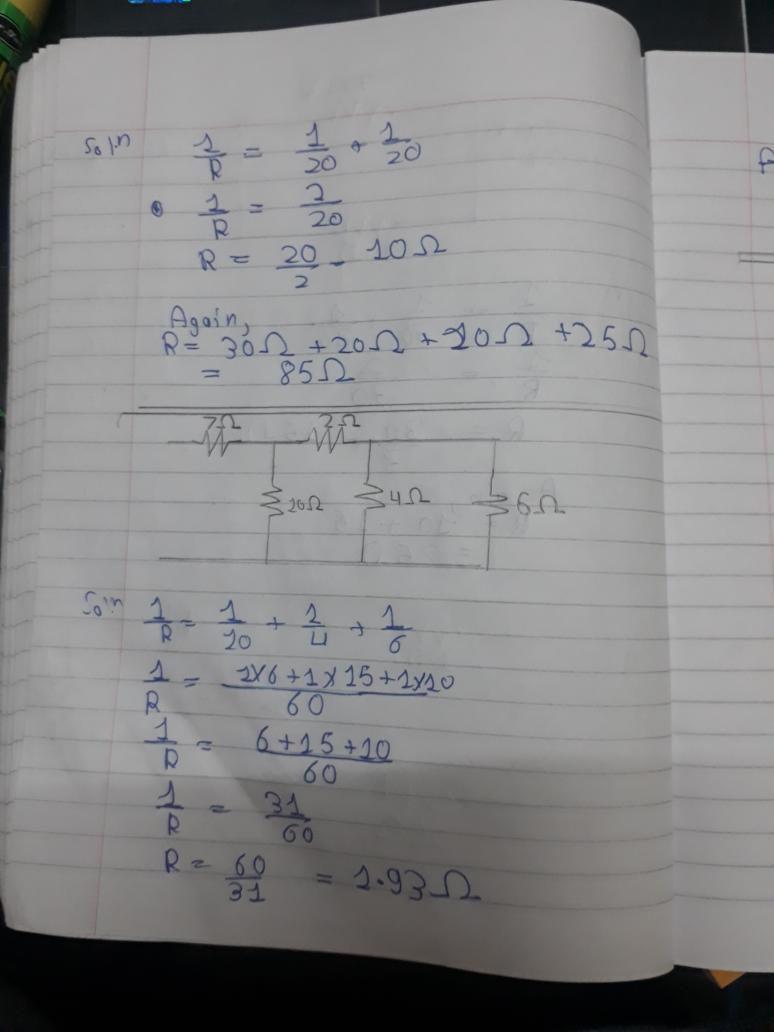 Soln 1/R = 1/20 + 1/20
1/R = 2/20
R = 20/2 = 10Ω
Again,
R = 30Ω + 20Ω + 10Ω + 25Ω
= 85Ω
7Ω 2Ω
10Ω 4Ω 6Ω
Soln 1/R = 1/10 + 1/4 + 1/6
1/R = 1×6+1×15+1×10/60
1/R = 6+15+10/60
1/R = 31/60
R = 60/31 = 1.93Ω